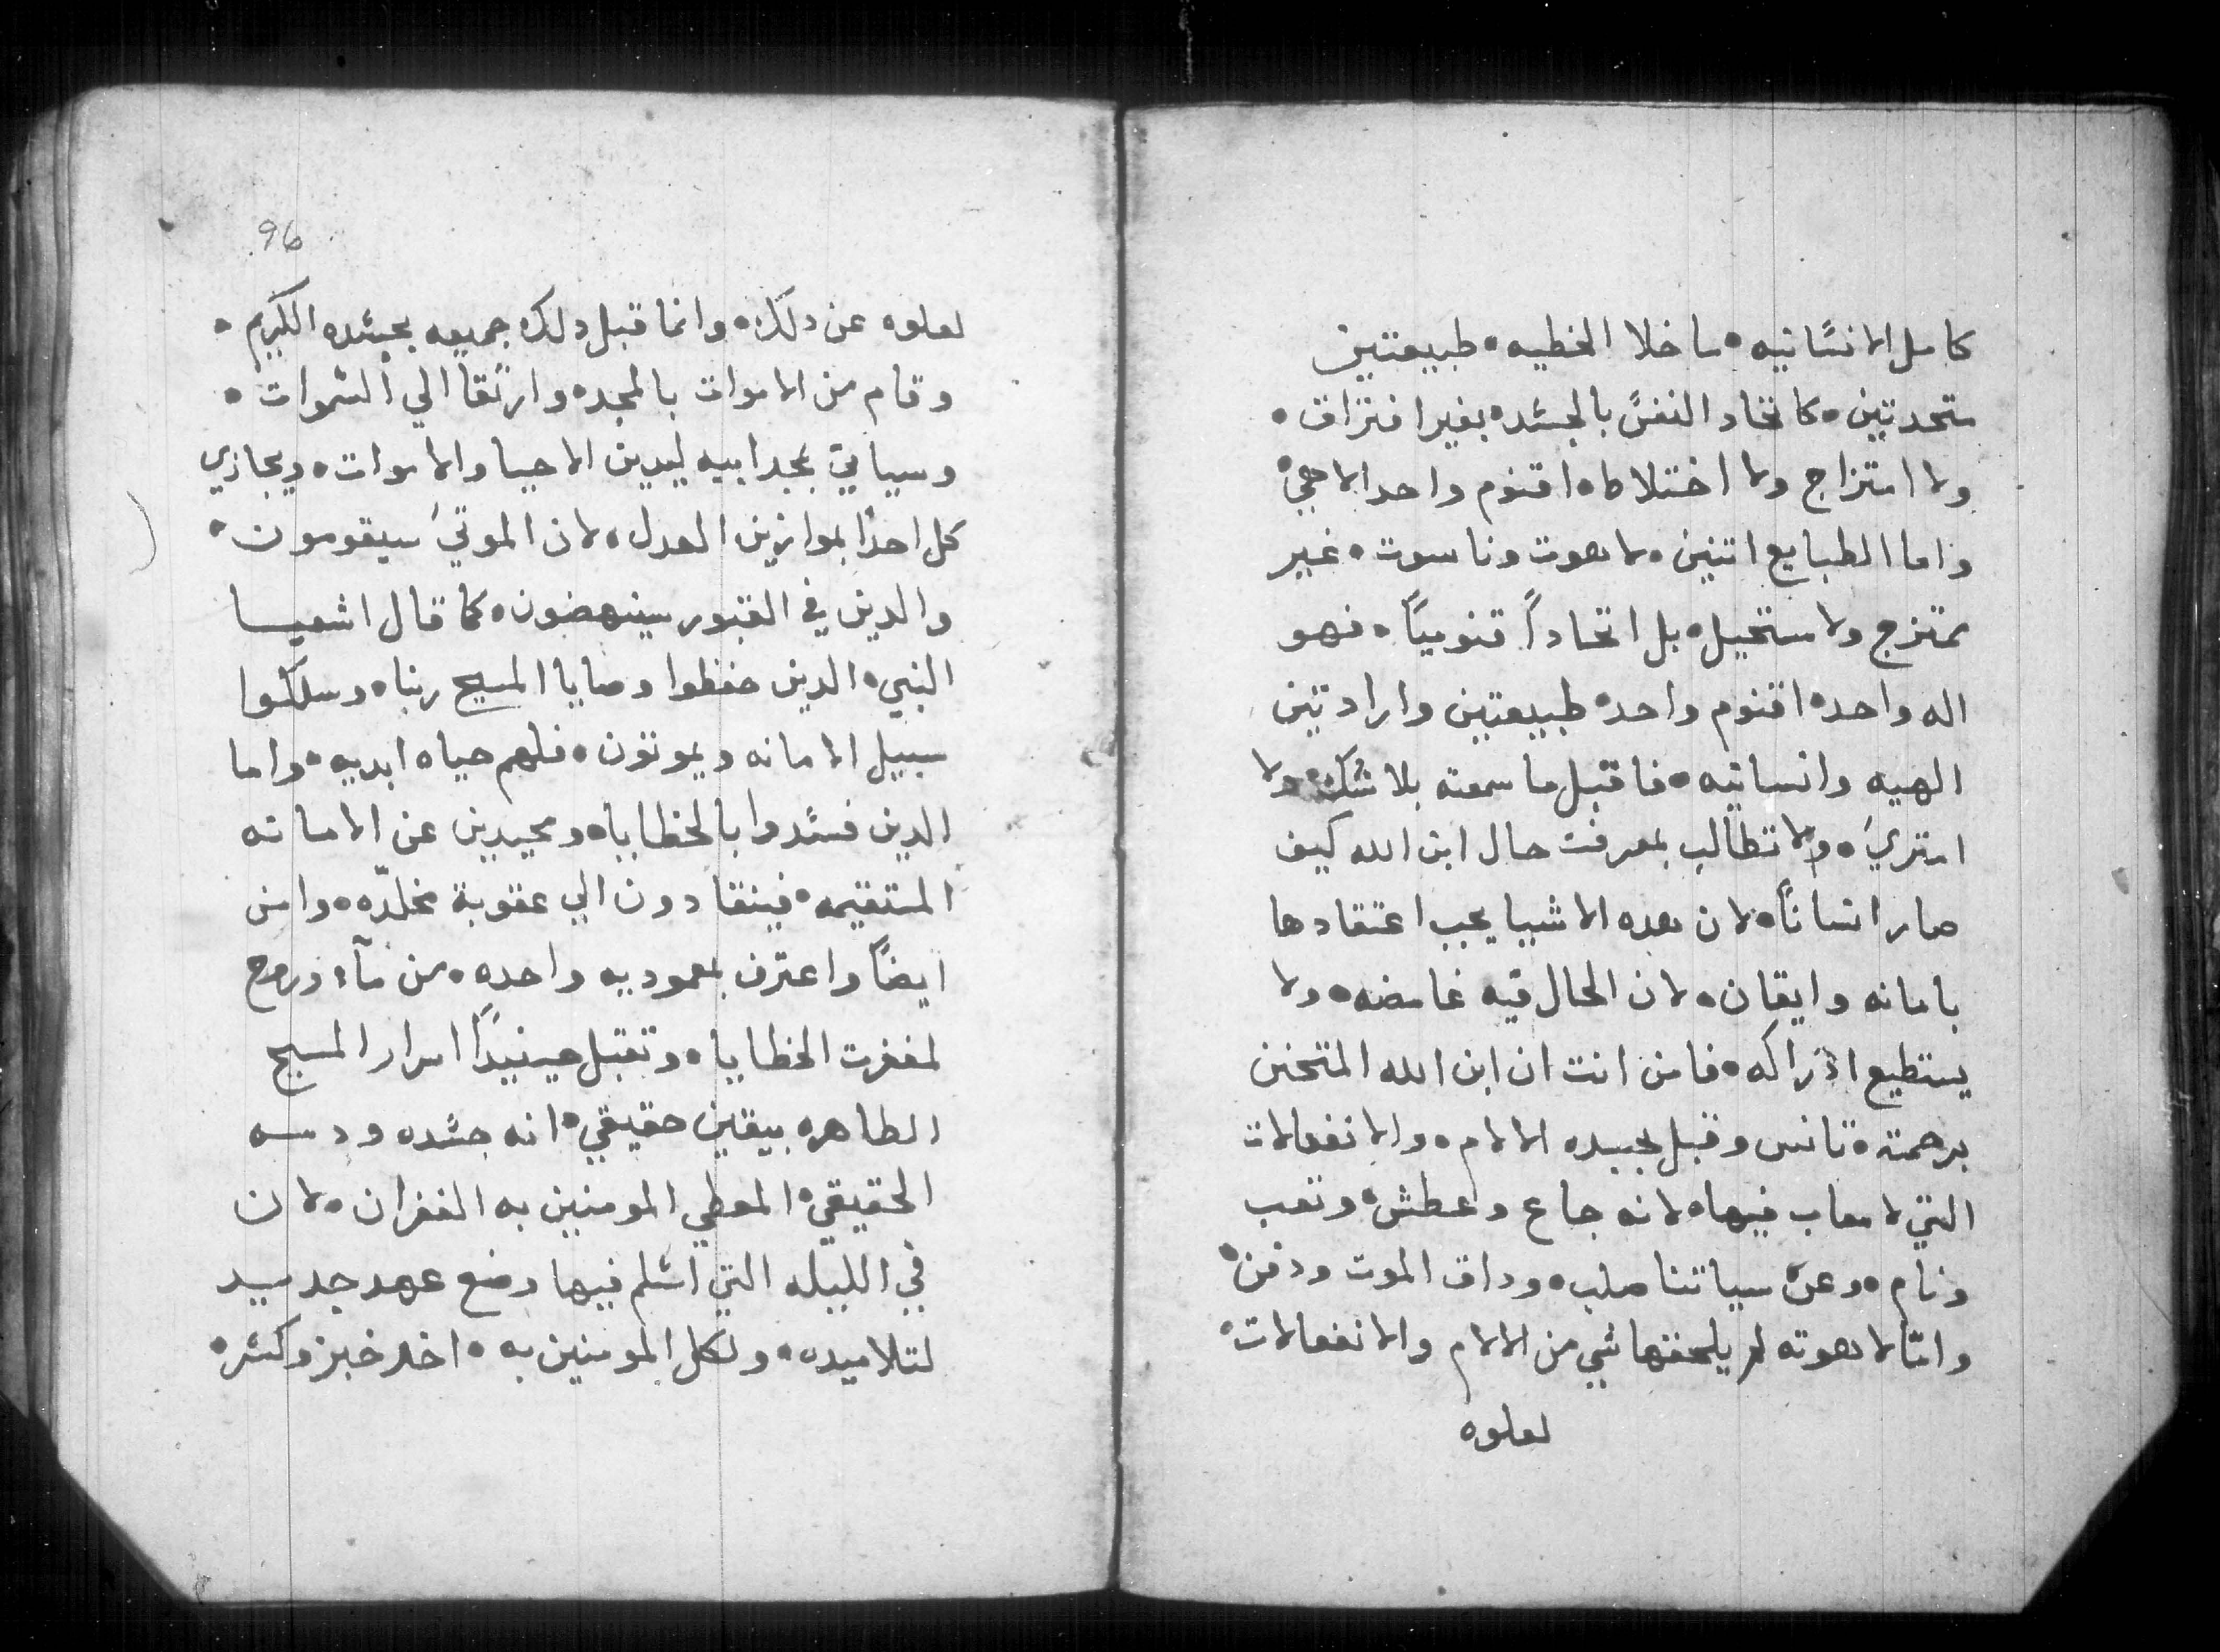 كامل الانسانيه • ما خلا الخطيه • طبيعتين
متحدتين • كاتحاد النفس بالجسد • بغير افتراق •
ولا امتزاج ولا اختلاط • اقنوم واحد الاهي •
واما الطبايع اتنين • لاهوت وناسوت • غير
ممتزج ولا مستحيل • بل اتحاداً قنومياً • فهو
اله واحد • اقنوم واحد • طبيعتين وارادتين
الهيه وانسانيه • فاقبل ما سمعته بلا شك • ولا
امتري • ولا تطالب بمعرفت حال ابن الله كيف
صار انساناً • لان هده الاشيا يجب اعتقادها
بامانه وايقان • لان الحال فيه غامضه • ولا
يستطيع ادراكه • فامن انت ان ابن الله المتحنن
برحمته • تانس وقبل بجسده الالام • والانفعالات
التي لا معاب فيها • لانه جاع وعطش • وتعب
ونام • وعن سياتنا صلب • وداق الموت ودفن •
وامّا لاهوته لم يلحقها شي من الالام والانفعالات •
لعلوه
96
لعلوه عن دلك • وانما قبل دلك جميعه بجسده الكريم •
وقام من الاموات بالمجد • وارتقا الي السموات •
وسياتي بمجد ابيه ليدين الاحيا والاموات • ويجازي
كل احداً بموازين العدل • لان الموتي سيقومون •
والدين في القبور سينهضون • كما قال اشعيا
النبي • الدين حفظوا وصايا المسيح ربنا • وسلكوا
سبيل الامانه ويموتون • فلهم حياه ابديه • واما
الدين فسدوا بالخطايا • ومحيدين عن الامانه
المستقيمه • فينقادون الي عقوبة مخلّده • وامن
ايضاً واعترف بمعموديه واحده • من مآء وروح
لمغفرت الخطايا • وتقبل حينيداً اسرار المسيح
الطاهره بيقين حقيقي • انه جسده ودمه
الحقيقي • المعطي المومنين به الغفران • لان
في الليله التي اسلم فيها وضع عهد جديد
لتلاميده • ولكل المومنين به • اخد خبز وكسر •